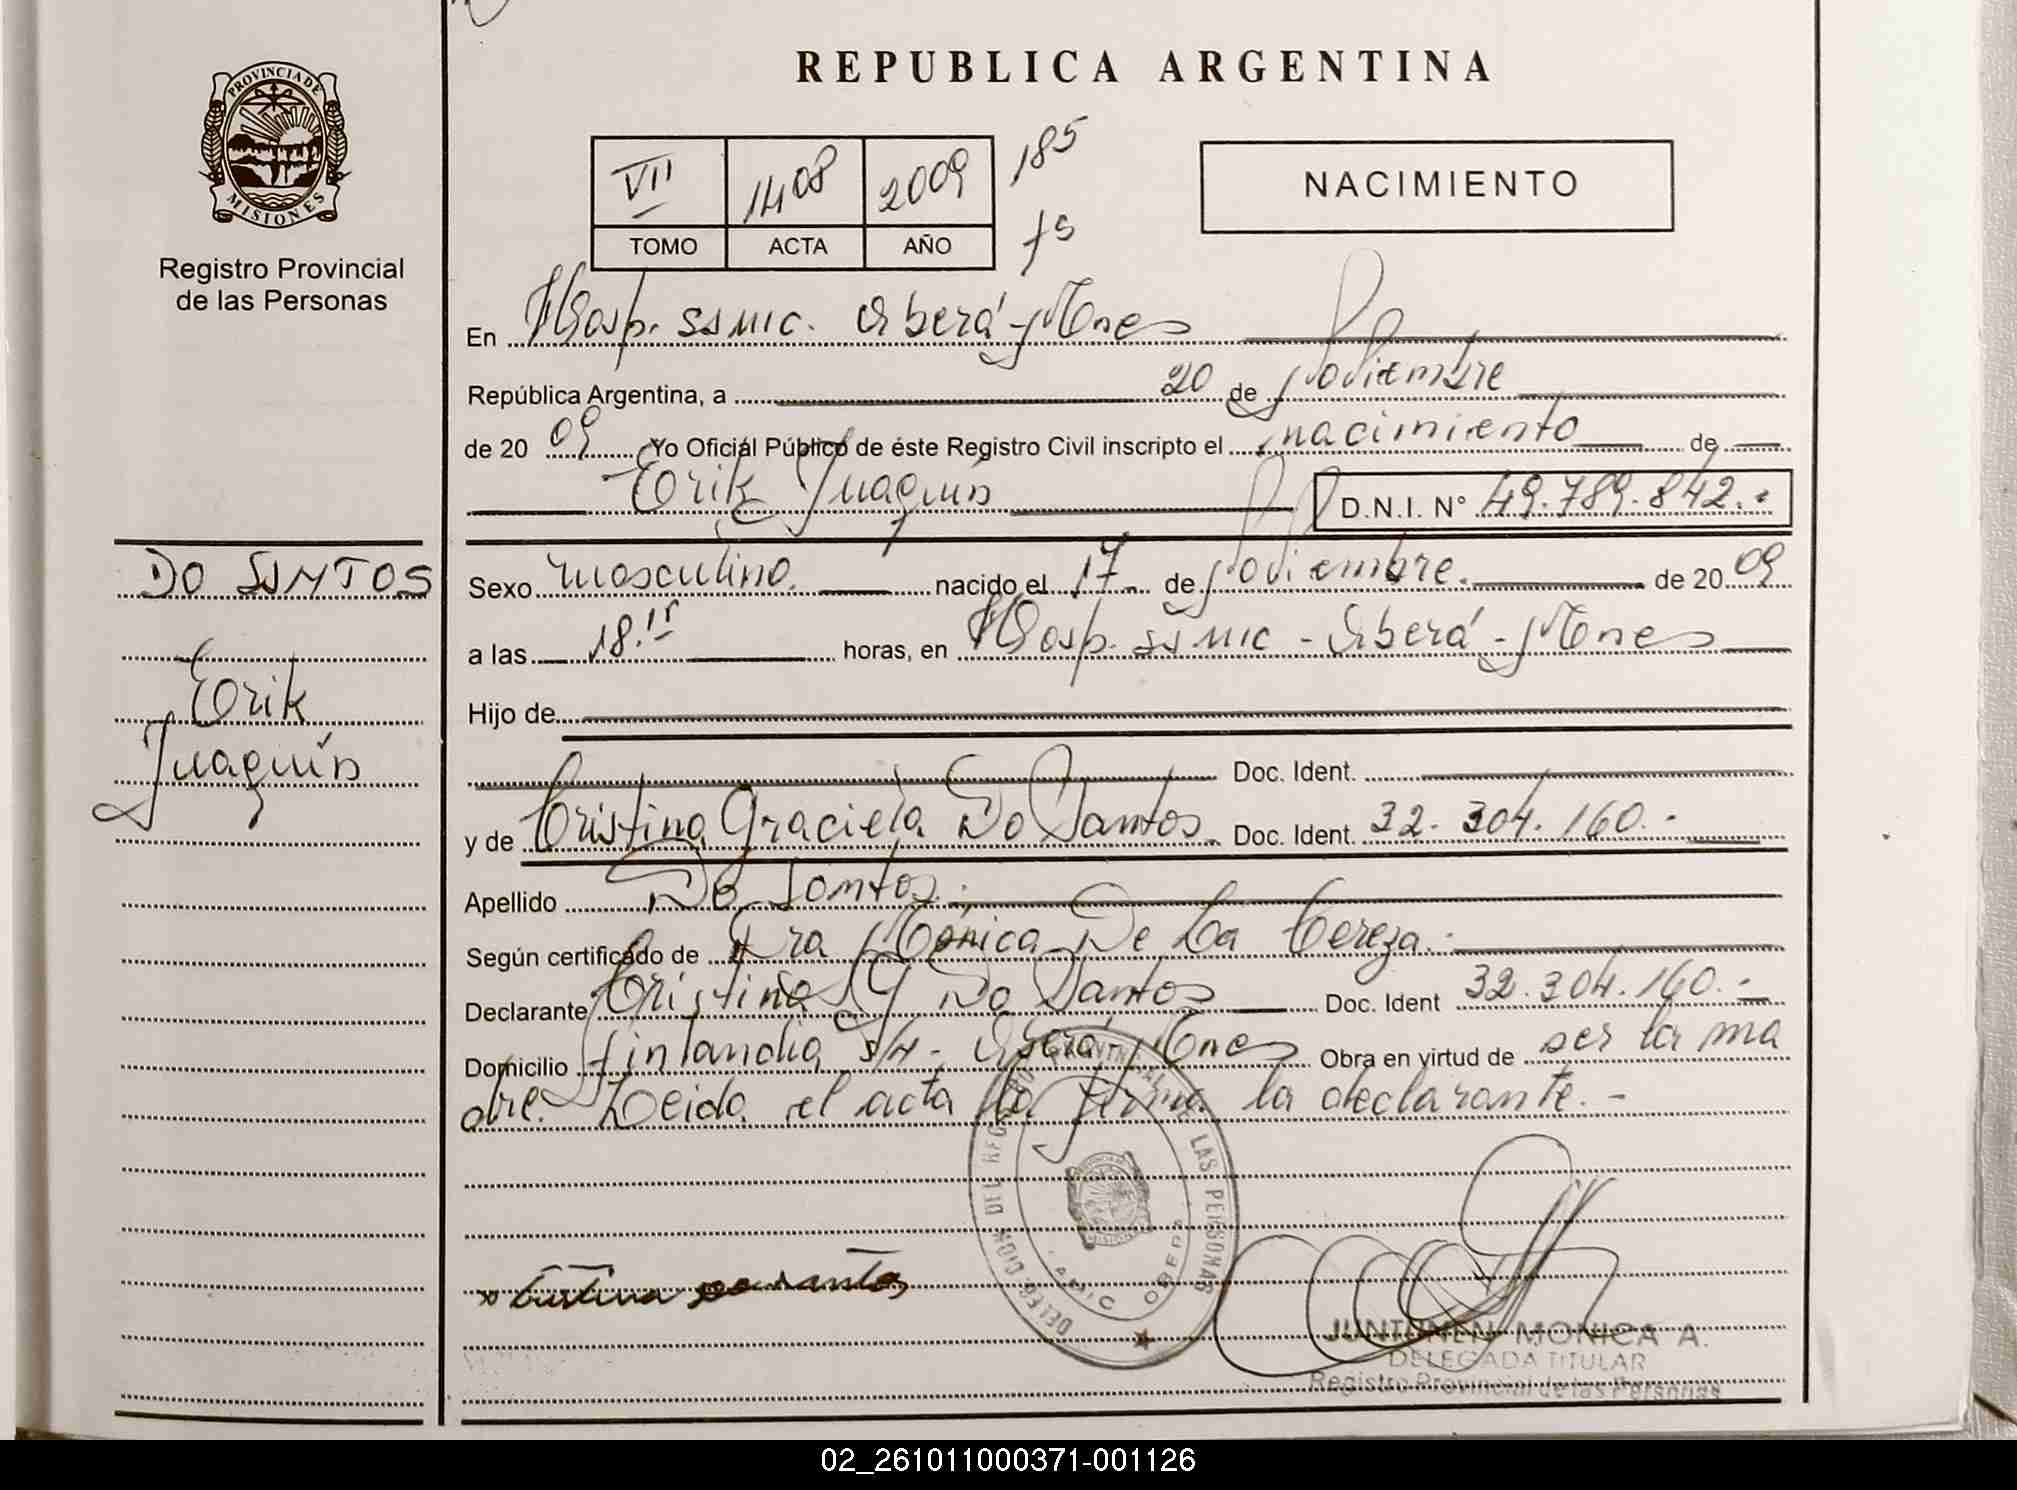 REPUBLICA ARGENTINA
PROVINCIA DE
MISIONES
Registro Provincial
de las Personas
VII 1408 2009 185
TOMO ACTA AÑO fs
NACIMIENTO
En Hosp. SSMIC. Oberá-Mnes
República Argentina, a 20 de Noviembre
de 20 09 Yo Oficial Público de éste Registro Civil inscripto el nacimiento de
Erik Juaquin D.N.I. N° 49.789.842.-
DO SANTOS
Erik
Juaquín
Sexo masculino. nacido el 17 de Noviembre. de 20 09
a las 18.15 horas, en Hosp. SSMIC - Oberá - Mnes
Hijo de
Doc. Ident.
y de Cristina Graciela Do Santos Doc. Ident. 32.304.160.-
Apellido Do Santos.
Según certificado de Dra Mónica De La Cereza.-
Declarante Cristina G Do Santos Doc. Ident 32.304.160.-
Domicilio Finlandia S/N - Oberá-Mnes Obra en virtud de ser la ma
dre. Leida el acta la firma la declarante.-
DELEGACION DEL REGISTRO PROVINCIAL DE LAS PERSONAS
OBERA
x Cristina do santos
JUNTUNEN MONICA A.
DELEGADA TITULAR
Registro Provincial de las Personas
02_261011000371-001126